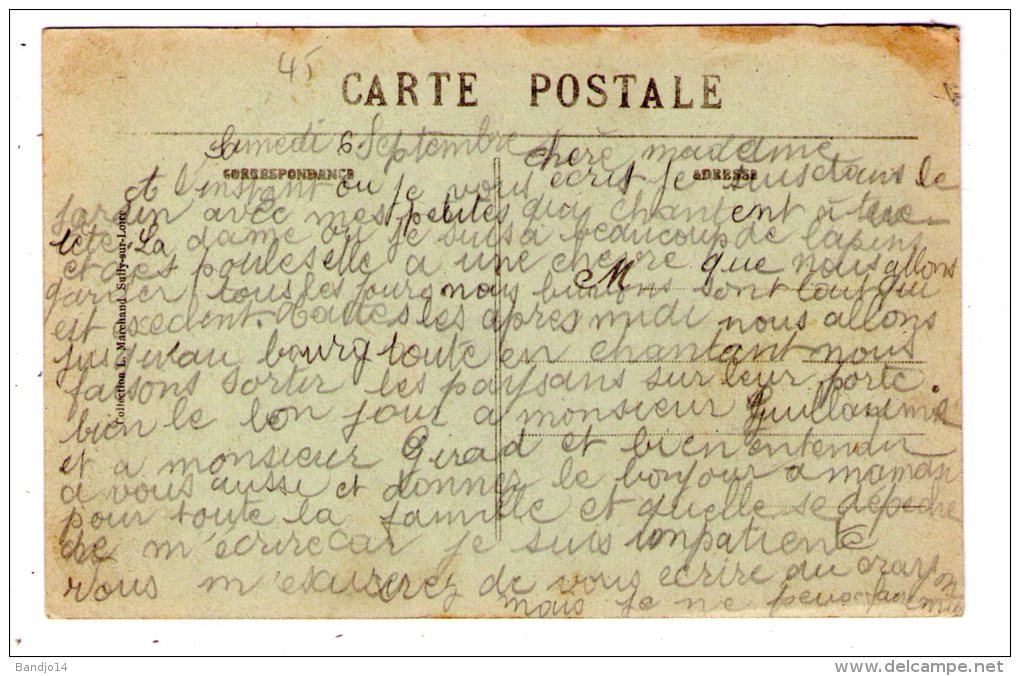 45
CARTE POSTALE
Samedi 6 Septembre chère madame
CORRESPONDANCE
ADRESSE
A l'instant ou je vous ecris je suis dans le
jardin avec mes petites qui chantent à tue
tête La dame ou je suis a beaucoup de lapins
et des poules elle a une chevre que nous allons
M
garder tous les jours nous sont tout qui
est exedent. Toutes les apres midi nous allons
jusqu'au bourg toute en chantant nous
faisons sortir les paysans sur leur porte.
bien le bon jour a monsieur Guillaume
et a monsieur Girad et bien entendu
a vous aussi et donnez le bonjour a maman
pour toute la famille et quelle se depeche
de m'ecrire car je suis impatiente
vous m'excuserez de vous ecrire au crayon
mais je ne peux faire mieu
Collection L. Marchand Sully-sur-Loire
Bandjo14
http://www.delcampe.net